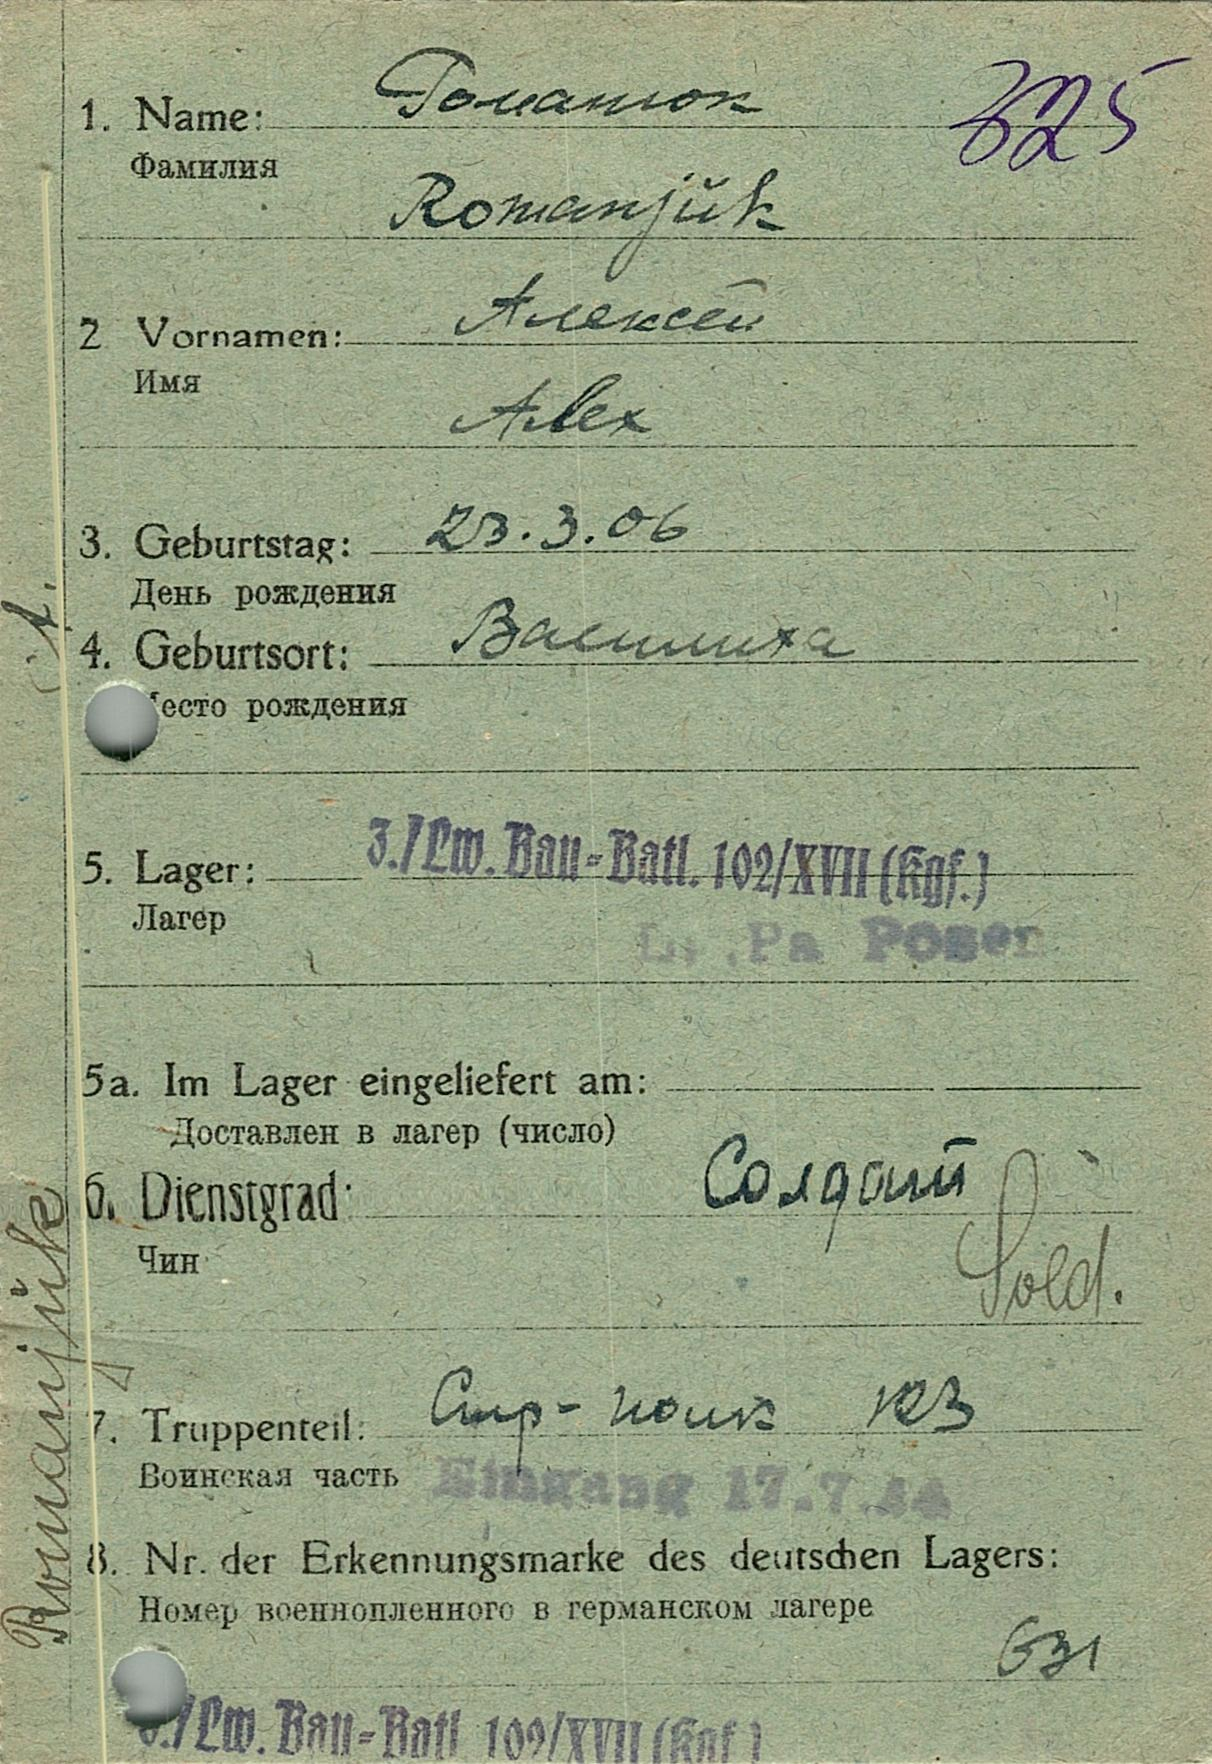 325
1. Name: Романюк
Фамилия
Romanjŭk
2 Vornamen: Алексей
Имя
Alex
3. Geburtstag: 23.3.06
День рождения
4. Geburtsort: Василиха
есто рождения
5. Lager: 3./Lw. Bau-Batl. 102/XVII (Kgf.)
Лагер
Pa Posen
5a. Im Lager eingeliefert am:
Доставлен в лагер (число)
6. Dienstgrad: Солдат
Чин
Sold.
7. Truppenteil: Стр-полк 123
Воинская часть Eingang 17.7.44
8. Nr. der Erkennungsmarke des deutschen Lagers:
Номер военнопленного в германском лагере
631
/Lw. Bau-Batl 102/XVII (Kgf.)
Romanjŭk A.